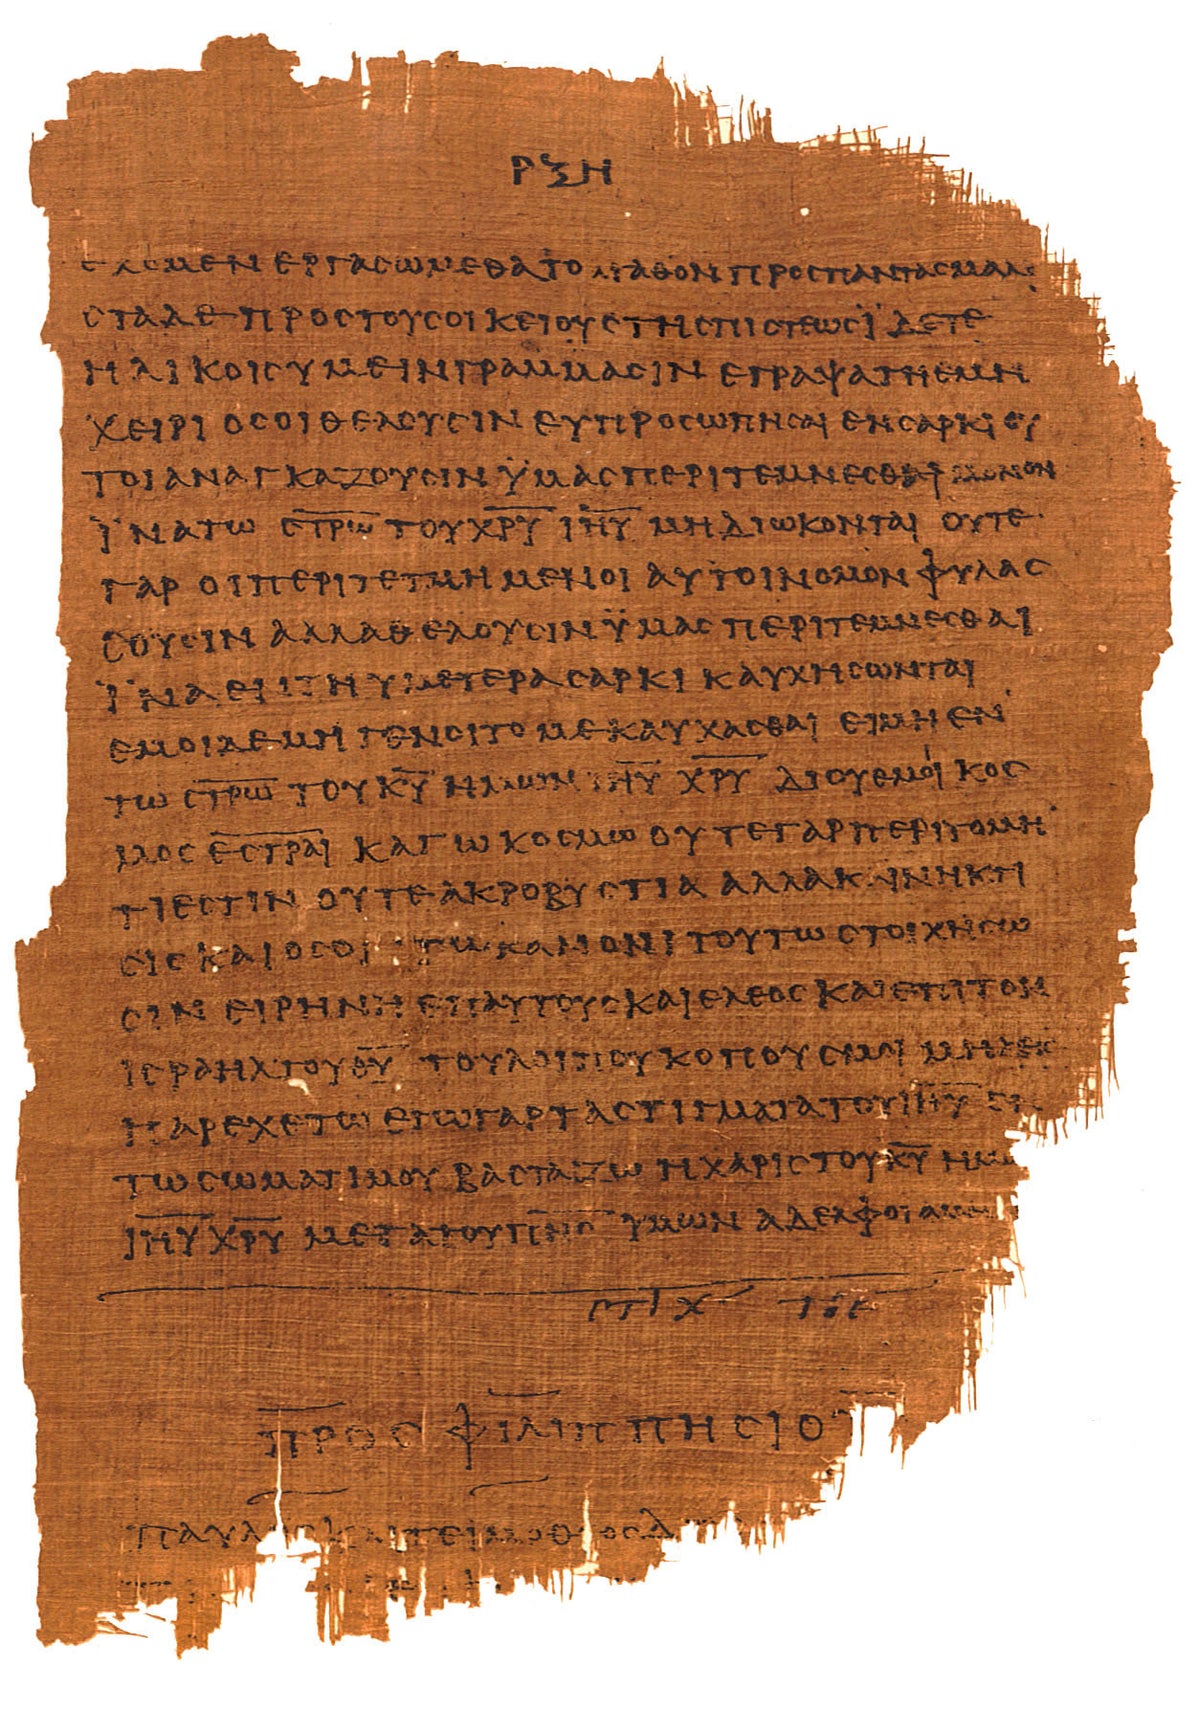 ΡΞΗ
ΜΕΝ ΕΡΓΑΣΩΜΕΘΑ ΤΟ ΑΓΑΘΟΝ ΠΡΟΣ ΠΑΝΤΑΣ ΜΑΛΙ
ΣΤΑ ΔΕ ΠΡΟΣ ΤΟΥΣ ΟΙΚΕΙΟΥΣ ΤΗΣ ΠΙΣΤΕΩΣ ΪΔΕΤΕ
ΗΛΙΚΟΙΣ ΥΜΕΙΝ ΓΡΑΜΜΑΣΙΝ ΕΓΡΑΨΑ ΤΗ ΕΜΗ
ΧΕΙΡΙ ΟΣΟΙ ΘΕΛΟΥΣΙΝ ΕΥΠΡΟΣΩΠΗΣΑΙ ΕΝ ΣΑΡΚΙ ΟΥ
ΤΟΙ ΑΝΑΓΚΑΖΟΥΣΙΝ ΫΜΑΣ ΠΕΡΙΤΕΜΝΕΣΘΑΙ ΜΟΝΟΝ
ΪΝΑ ΤΩ Σ̅Τ̅Ρ̅Ω̅ ΤΟΥ Χ̅Ρ̅Υ̅ Ι̅Η̅Υ̅ ΜΗ ΔΙΩΚΟΝΤΑΙ ΟΥΤΕ
ΓΑΡ ΟΙ ΠΕΡΙΤΕΤΜΗΜΕΝΟΙ ΑΥΤΟΙ ΝΟΜΟΝ ΦΥΛΑΣ
ΣΟΥΣΙΝ ΑΛΛΑ ΘΕΛΟΥΣΙΝ ΫΜΑΣ ΠΕΡΙΤΕΜΝΕΣΘΑΙ
ΪΝΑ ΕΙ ΤΗ ΥΜΕΤΕΡΑ ΣΑΡΚΙ ΚΑΥΧΗΣΩΝΤΑΙ
ΕΜΟΙ ΔΕ ΜΗ ΓΕΝΟΙΤΟ ΜΕ ΚΑΥΧΑΣΘΑΙ ΕΙ ΜΗ ΕΝ
ΤΩ Σ̅Τ̅Ρ̅Ω̅ ΤΟΥ Κ̅Υ̅ ΗΜΩΝ Ι̅Η̅Υ̅ Χ̅Ρ̅Υ̅ ΔΙ ΟΥ ΕΜΟΙ ΚΟΣ
ΜΟΣ Ε̅Σ̅Τ̅Ρ̅Α̅Ι̅ ΚΑΓΩ ΚΟΣΜΩ ΟΥΤΕ ΓΑΡ ΠΕΡΙΤΟΜΗ
ΤΙ ΕΣΤΙΝ ΟΥΤΕ ΑΚΡΟΒΥΣΤΙΑ ΑΛΛΑ ΚΑΙΝΗ ΚΤΙ
ΣΙΣ ΚΑΙ ΟΣΟΙ ΤΩ ΚΑΝΟΝΙ ΤΟΥΤΩ ΣΤΟΙΧΗΣΩ
ΣΙΝ ΕΙΡΗΝΗ ΕΠ ΑΥΤΟΥΣ ΚΑΙ ΕΛΕΟΣ ΚΑΙ ΕΠΙ ΤΟΝ
ΙΣΡΑΗΛ ΤΟΥ Θ̅Υ̅ ΤΟΥ ΛΟΙΠΟΥ ΚΟΠΟΥΣ ΜΟΙ ΜΗΔΕΙΣ
ΠΑΡΕΧΕΤΩ ΕΓΩ ΓΑΡ ΤΑ ΣΤΙΓΜΑΤΑ ΤΟΥ Ι̅Η̅Υ̅ ΕΝ
ΤΩ ΣΩΜΑΤΙ ΜΟΥ ΒΑΣΤΑΖΩ Η ΧΑΡΙΣ ΤΟΥ Κ̅Υ̅ ΗΜΩ
Ι̅Η̅Υ̅ Χ̅Ρ̅Υ̅ ΜΕΤΑ ΤΟΥ Π̅Ν̅Σ̅ ΥΜΩΝ ΑΔΕΛΦΟΙ ΑΜΗΝ
ΣΤΙΧ ΤΟΕ
ΠΡΟΣ ΦΙΛΙΠΠΗΣΙΟΥ
ΠΑΥΛΟΣ ΚΑΙ ΤΕΙΜΟΘΕΟΣ Δ